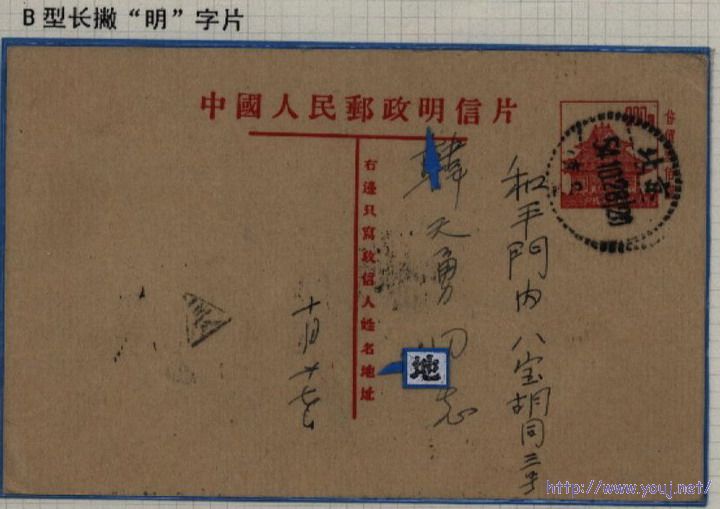 B型长撇“明”字片
中國人民郵政明信片
右邊只寫收信人姓名地址
和平門内八宝胡同三号
韓天勇同志
十月廿七日
地
北京
http://www.youj.net/